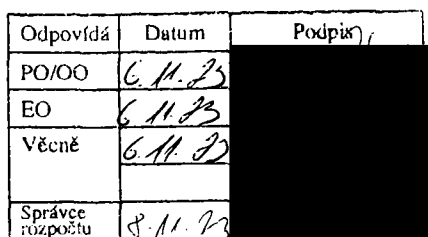 Odpovídá Datum Podpis
PO/OO 6.11.23
EO 6.11.23
Věcně 6.11.23
Správce
rozpočtu 8.11.23